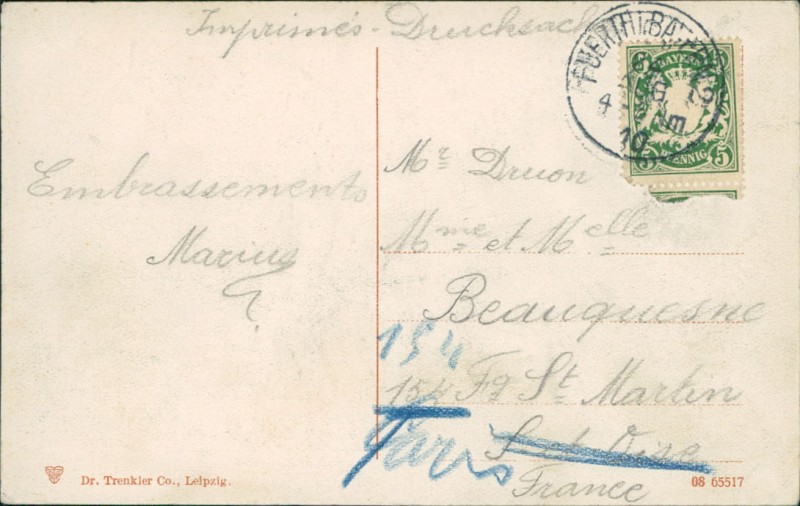 Imprimés - Drucksache
FUERTH (BAYERN) 2
4
10
BAYERN
5 PFENNIG 5
Embrassements
Marius
Mr Druon
Mme et Melle
Beauquesne
154
154 Fg St Martin
Paris
S et Oise
France
Dr. Trenkler Co., Leipzig.
08 65517